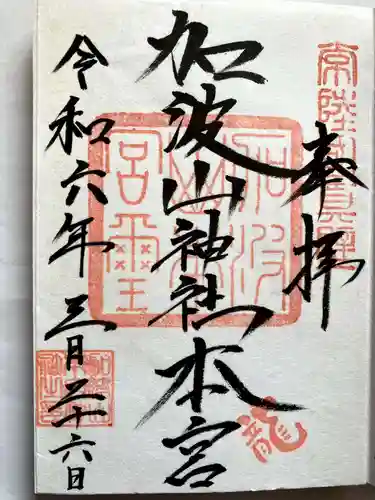 奉拝
加波山神社本宮
令和六年三月二十六日